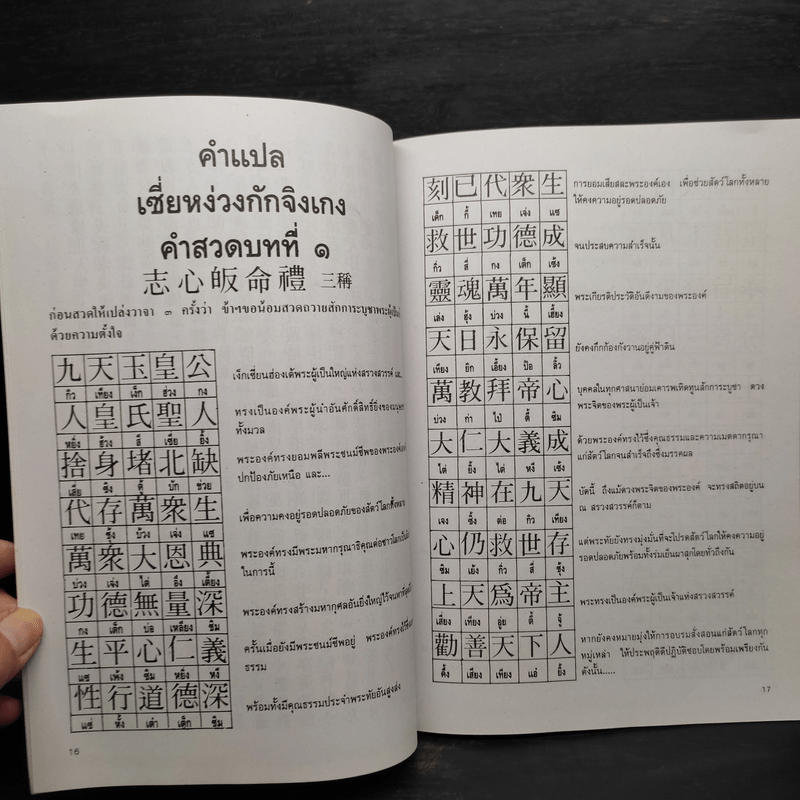 คำแปล
เซี่ยหง่วงกักจิงเกง
คำสวดบทที่ ๑
志心皈命禮 三稱
ก่อนสวดให้เปล่งวาจา ๓ ครั้งว่า ข้าฯขอน้อมสวดถวายสักการะบูชาพระผู้เป็น
ด้วยความตั้งใจ
九天玉皇公
กิว เทียง เง็ก ฮ่วง กง
เง็กเซียนฮ่องเต้พระผู้เป็นใหญ่แห่งสรวงสวรรค์
人皇氏聖人
หยิ่ง ฮ้วง สี เซี่ย ยิ้ง
ทรงเป็นองค์พระผู้นำอันศักดิ์สิทธิ์ยิ่งของมนุษย์
ทั้งมวล
捨身堵北缺
เสี่ย ซิง ตี้ บัก ข่วย
พระองค์ทรงยอมพลีพระชนม์ชีพของพระองค์
ปกป้องภัยเหนือ และ...
代存萬衆生
เทย ชุ้ง บ้วง เจ่ง แซ
เพื่อความคงอยู่รอดปลอดภัยของสัตว์โลกทั้งหลาย
萬衆大恩典
บ่วง เจ่ง ไต่ อึง เตี้ยง
พระองค์ทรงมีพระมหากรุณาธิคุณต่อชาวโลกเป็น
ในการนี้
功德無量深
กง เต็ก บ่อ เหลี่ยง ชิม
พระองค์ทรงสร้างมหากุศลอันยิ่งใหญ่ไว้
生平心仁義
แซ เพ้ง ซิม หยิ่ง หงี
ครั้นเมื่อยังมีพระชนม์ชีพอยู่ พระองค์ทรงไว้
ธรรม
性行道德深
แซ่ หั้ง เต๋า เต็ก ชิม
พร้อมทั้งมีคุณธรรมประจำพระทัยอันสูงส่ง
16
刻已代衆生
เค็ก กี้ เทย เจ่ง แซ
การยอมเสียสละพระองค์เอง เพื่อช่วยสัตว์โลกทั้งหลาย
ให้คงความอยู่รอดปลอดภัย
救世功德成
กิ่ว สี่ กง เต็ก เซ้ง
จนประสบความสำเร็จนั้น
靈魂萬年顯
เล่ง ฮุ้ง บ่วง นี้ เฮี้ยง
พระเกียรติประวัติอันดีงามของพระองค์
天日永保留
เทียง ยิก เอี้ยง ป้อ ลิ้ว
ยังคงกึกก้องกังวานอยู่คู่ฟ้าดิน
萬教拜帝心
บ่วง ก่า ไป่ ตี้ ซิม
บุคคลในทุกศาสนาย่อมเคารพเทิดทูนสักการะบูชา ดวง
พระจิตของพระผู้เป็นเจ้า
大仁大義成
ไต่ ยิ้ง ไต่ หงี เซ้ง
ด้วยพระองค์ทรงไว้ซึ่งคุณธรรมและความเมตตากรุณา
แก่สัตว์โลกจนสำเร็จถึงซึ่งมรรคผล
精神在九天
เจง ซิ้ง ต่อ กิว เทียง
บัดนี้ ถึงแม้ดวงพระจิตของพระองค์ จะทรงสถิตอยู่บน
ณ สรวงสวรรค์ก็ตาม
心仍救世存
ซิม เย้ง กิ่ว สี่ ชุ้ง
แต่พระทัยยังทรงมุ่งมั่นที่จะโปรดสัตว์โลกให้คงความอยู่
รอดปลอดภัยพร้อมทั้งร่มเย็นผาสุกโดยทั่วถึงกัน
上天爲帝主
เสี่ยง เทียง อุ่ย ตี้ จู้
พระทรงเป็นองค์พระผู้เป็นเจ้าแห่งสรวงสวรรค์
勸善天下人
คึ่ง เสียง เทียง แอ่ ยิ้ง
หากยังคงหมายมุ่งให้การอบรมสั่งสอนแก่สัตว์โลกทุก
หมู่เหล่า ให้ประพฤติดีปฏิบัติชอบโดยพร้อมเพรียงกัน
ดังนั้น.....
17